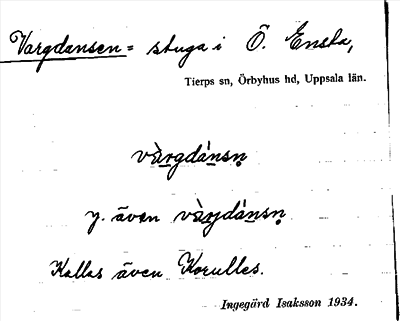 Vargdansen = stuga i Ö. Ensta,
Tierps sn, Örbyhus hd, Uppsala län.
và̱rgdánsn̥
y. även và̱rjdánsn̥
Kallas även Korulles.
Ingegärd Isaksson 1934.